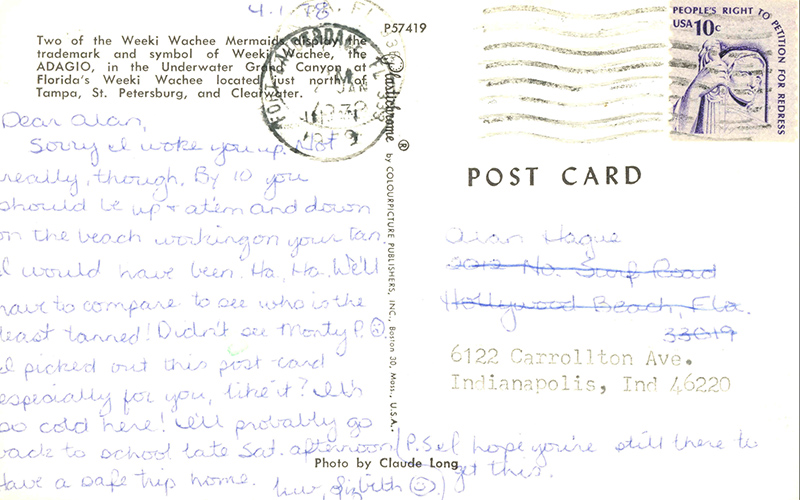 4.1.78
P57419
Two of the Weeki Wachee Mermaids display the
trademark and symbol of Weeki Wachee, the
ADAGIO, in the Underwater Grand Canyon at
Florida's Weeki Wachee located just north of
Tampa, St. Petersburg, and Clearwater.
Dear Alan,
Sorry I woke you up. Not
really, though. By 10 you
should be up & at'em and down
on the beach working on your tan.
I would have been. Ha, Ha. We'll
have to compare to see who is the
least tanned! Didn't see Monty P.
I picked out this post-card
especially for you, like it? It's
so cold here! I'll probably go
back to school late Sat. afternoon
Have a safe trip home.
(P.S. I hope you're still there to
get this.
Photo by Claude Long
Plastichrome ® by COLOURPICTURE PUBLISHERS, INC., Boston 30, Mass., U.S.A.
FORT LAUDERDALE FL 333
JAN
PEOPLE'S RIGHT TO PETITION FOR REDRESS
USA 10c
POST CARD
Alan Hague
2012 No. Surf Road
Hollywood Beach, Fla.
33019
6122 Carrollton Ave.
Indianapolis, Ind 46220